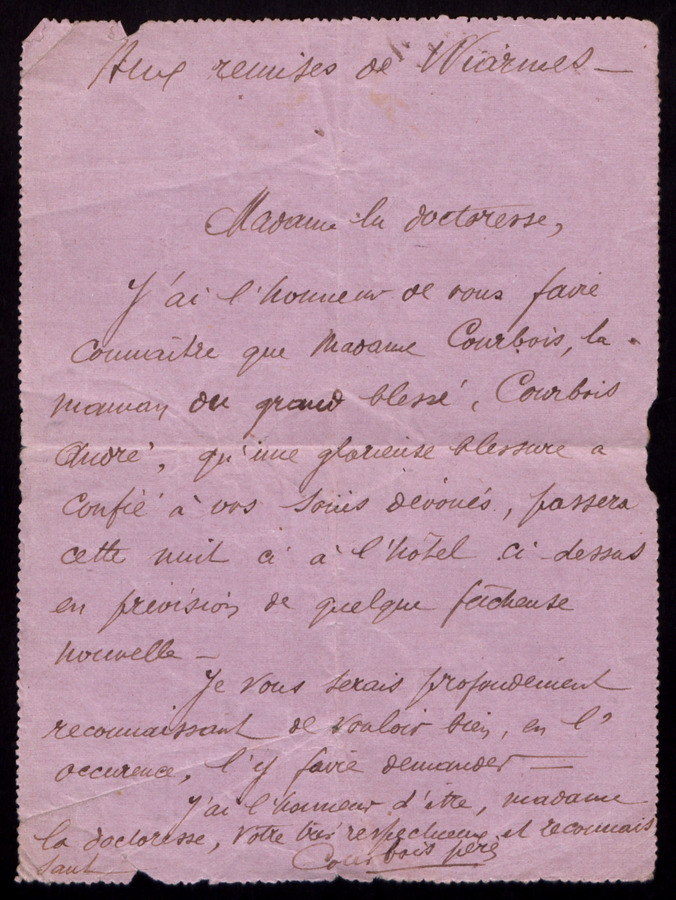 Aux remises de Wiarmes —
Madame la doctoresse,
J'ai l'honneur de vous faire
connaître que Madame Courbois, la
maman du grand blessé, Courbois
André, qu'une glorieuse blessure a
confié à vos soins dévoués, passera
cette nuit ci à l'hôtel ci-dessus
en prévision de quelque fâcheuse
nouvelle —
Je vous serais profondément
reconnaissant de vouloir bien, en l'
occurence, l'y faire demander —
J'ai l'honneur d'être, madame
la doctoresse, votre très respectueux et reconnais
sant
Courbois père